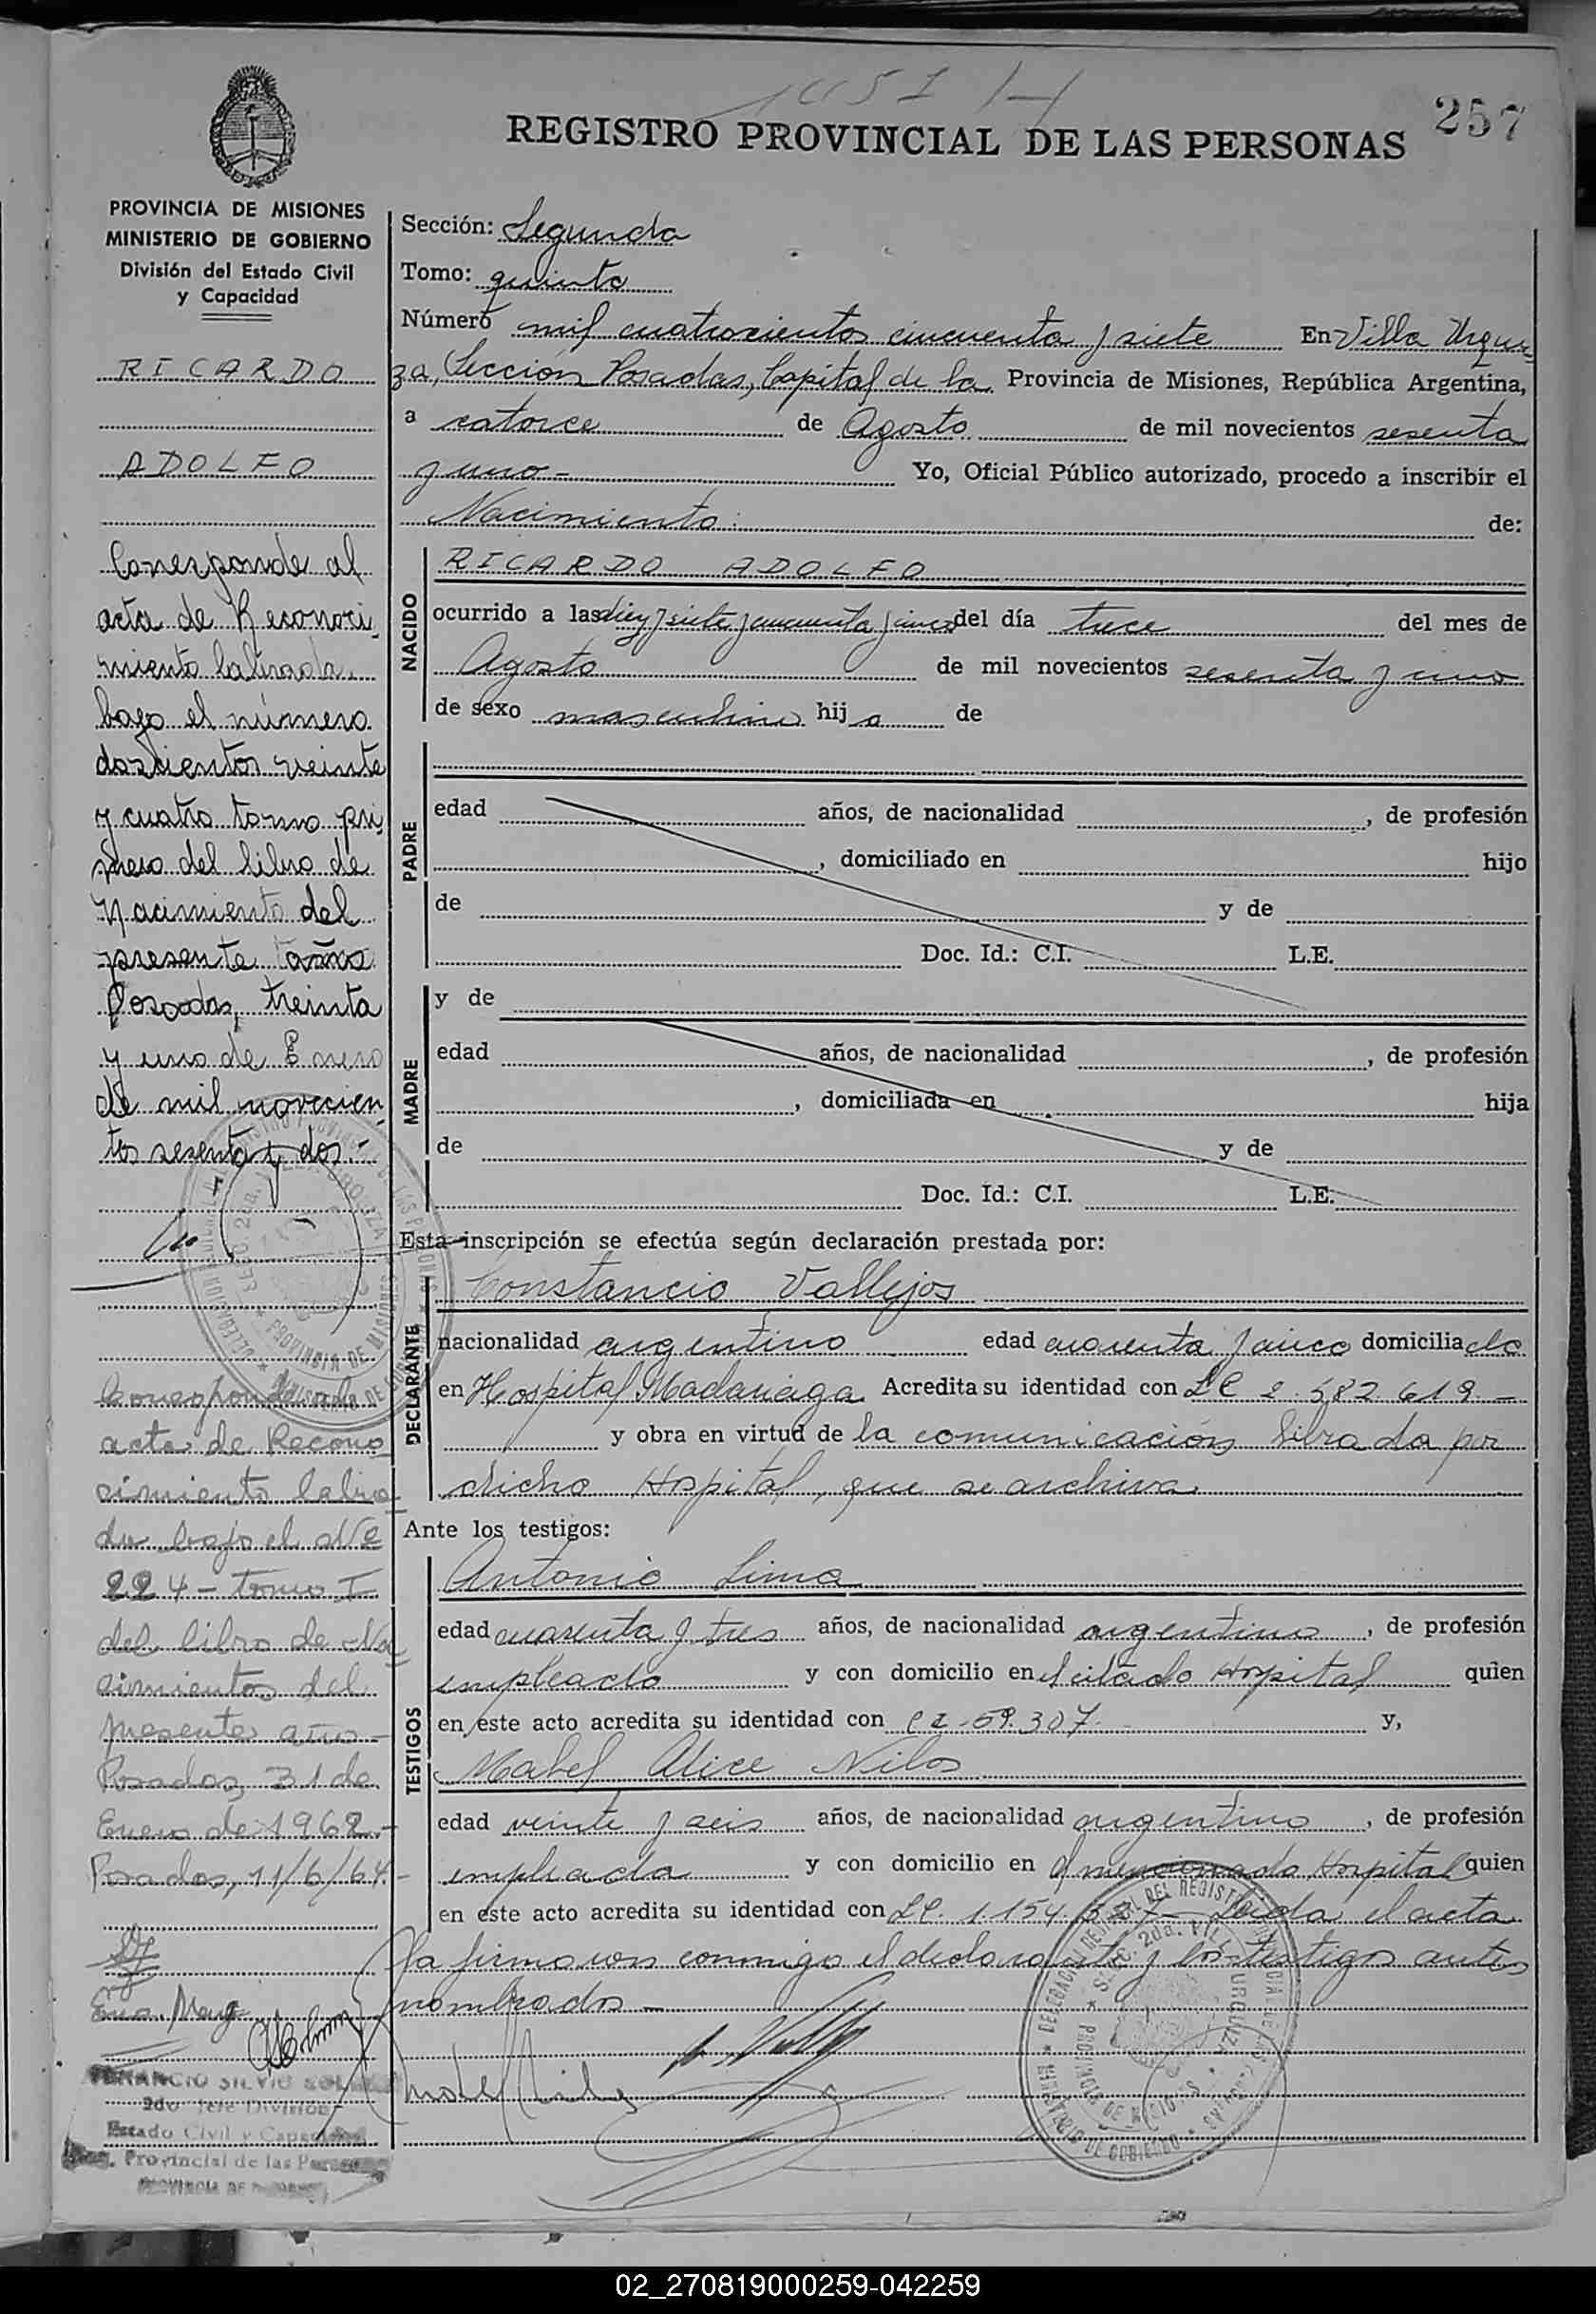 257
REGISTRO PROVINCIAL DE LAS PERSONAS
PROVINCIA DE MISIONES
MINISTERIO DE GOBIERNO
División del Estado Civil
y Capacidad
RICARDO
ADOLFO
Corresponde al
acta de Reconoci
miento labrada
bajo el número
doscientos veinte
y cuatro tomo pri
mero del libro de
Nacimiento del
presente año
Posadas, treinta
y uno de Enero
de mil novecien
tos sesenta y dos.-
Corresponde al
acta de Recono
cimiento labra
da bajo el Nº
224 - tomo I
del libro de Na
cimientos del
presente año -
Posadas, 31 de
Enero de 1962.-
Posadas, 11/6/64.-
VENANCIO SILVIO
2do Jefe División
Estado Civil y Capacidad
Provincial de las Personas
PROVINCIA DE
Sección: Segunda
Tomo: quinto
Número mil cuatrocientos cincuenta y siete En Villa Urqui-
za, Sección Posadas, Capital de la Provincia de Misiones, República Argentina,
a catorce de Agosto de mil novecientos sesenta
y uno - Yo, Oficial Público autorizado, procedo a inscribir el
Nacimiento: de:
NACIDO
RICARDO ADOLFO
ocurrido a las diez y siete y cincuenta y cinco del día trece del mes de
Agosto de mil novecientos sesenta y uno
de sexo masculino hijo de
PADRE
edad años, de nacionalidad , de profesión
, domiciliado en hijo
de y de
Doc. Id.: C.I. L.E.
MADRE
y de
edad años, de nacionalidad , de profesión
, domiciliada en hija
de y de
Doc. Id.: C.I. L.E.
Esta inscripción se efectúa según declaración prestada por:
DECLARANTE
Constancio Vallejos
nacionalidad argentino edad cuarenta y cinco domiciliado
en Hospital Madariaga Acredita su identidad con LE 2.582.619.-
y obra en virtud de la comunicación librada por
dicho Hospital, que se archiva
Ante los testigos:
TESTIGOS
Antonio Lima
edad cuarenta y tres años, de nacionalidad argentino , de profesión
empleado y con domicilio en el citado Hospital quien
en este acto acredita su identidad con CI - 59.307. y,
Mabel Alice Nilos
edad veinte y seis años, de nacionalidad argentino , de profesión
empleada y con domicilio en el mencionado Hospital quien
en este acto acredita su identidad con LC. 1.154. Leida el acta
la firmaron conmigo el declarante y los testigos antes
nombrados -
02_270819000259-042259